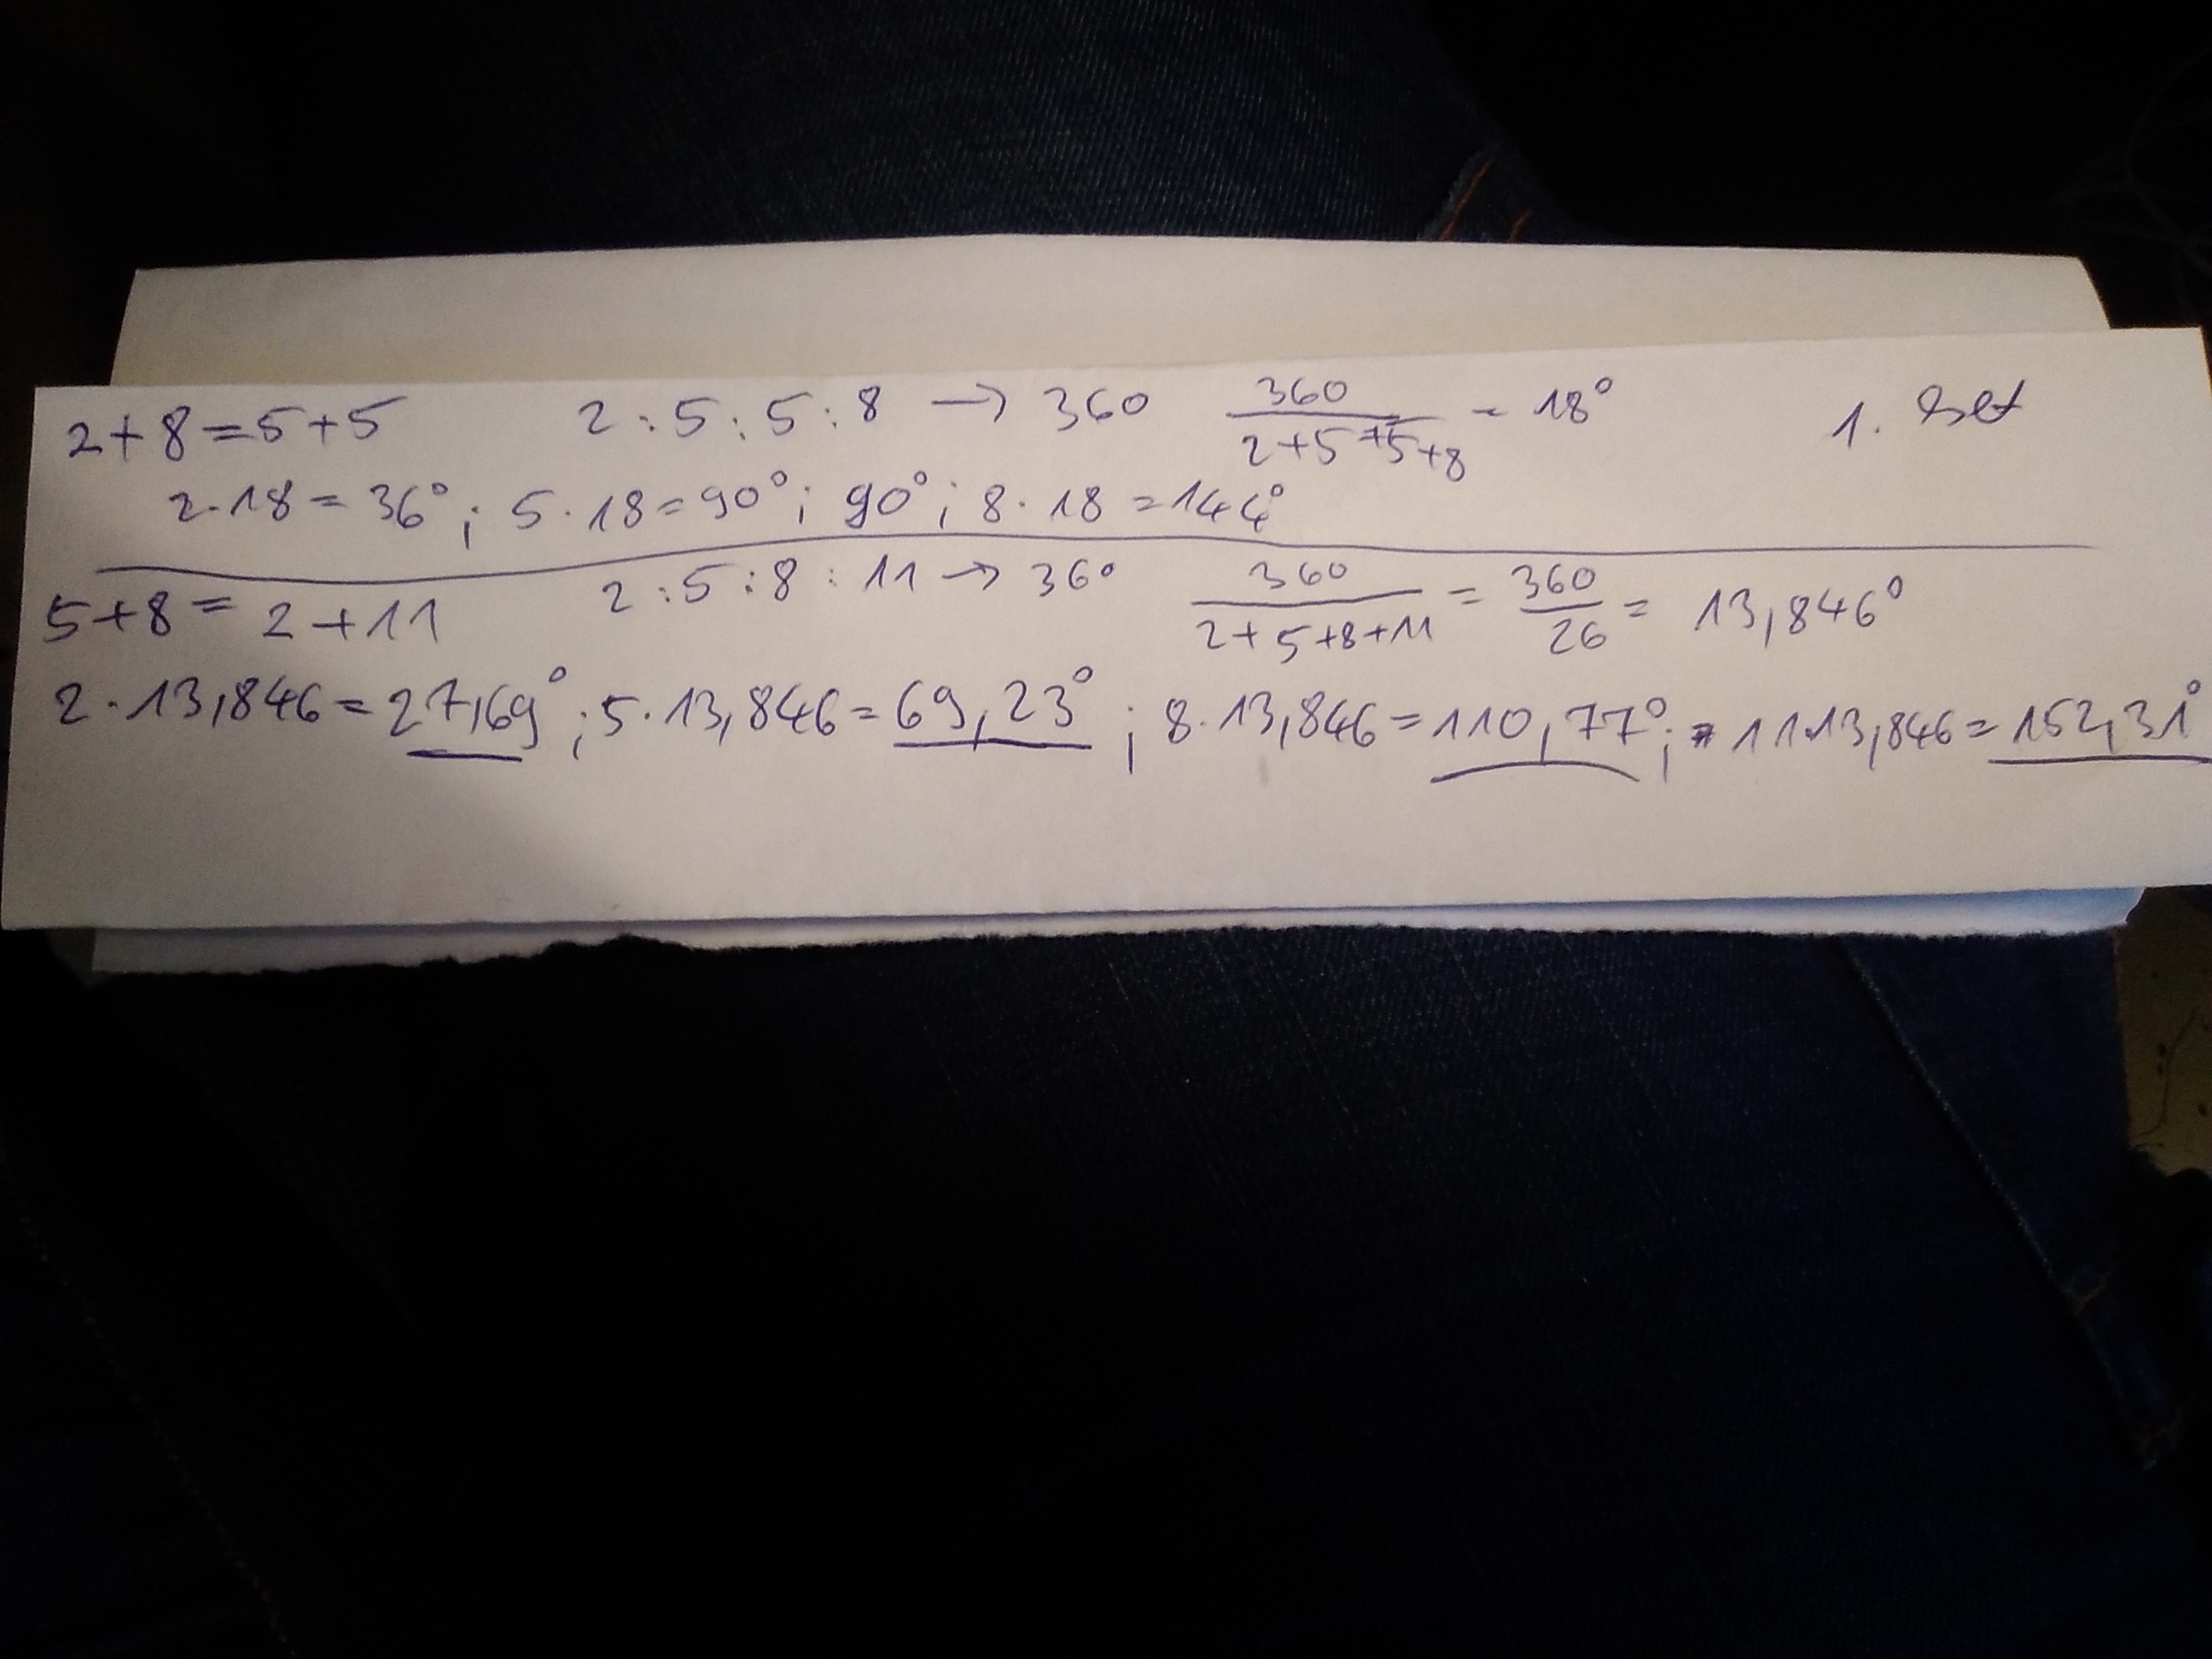 2+8=5+5 2:5:5:8 → 360 360/(2+5+5+8) = 18° 1. Set
2·18=36°; 5·18=90°; 90°; 8·18=144°
5+8=2+11 2:5:8:11 → 360 360/(2+5+8+11) = 360/26 = 13,846°
2·13,846=27,69°; 5·13,846=69,23°; 8·13,846=110,77°; 11·13,846=152,31°